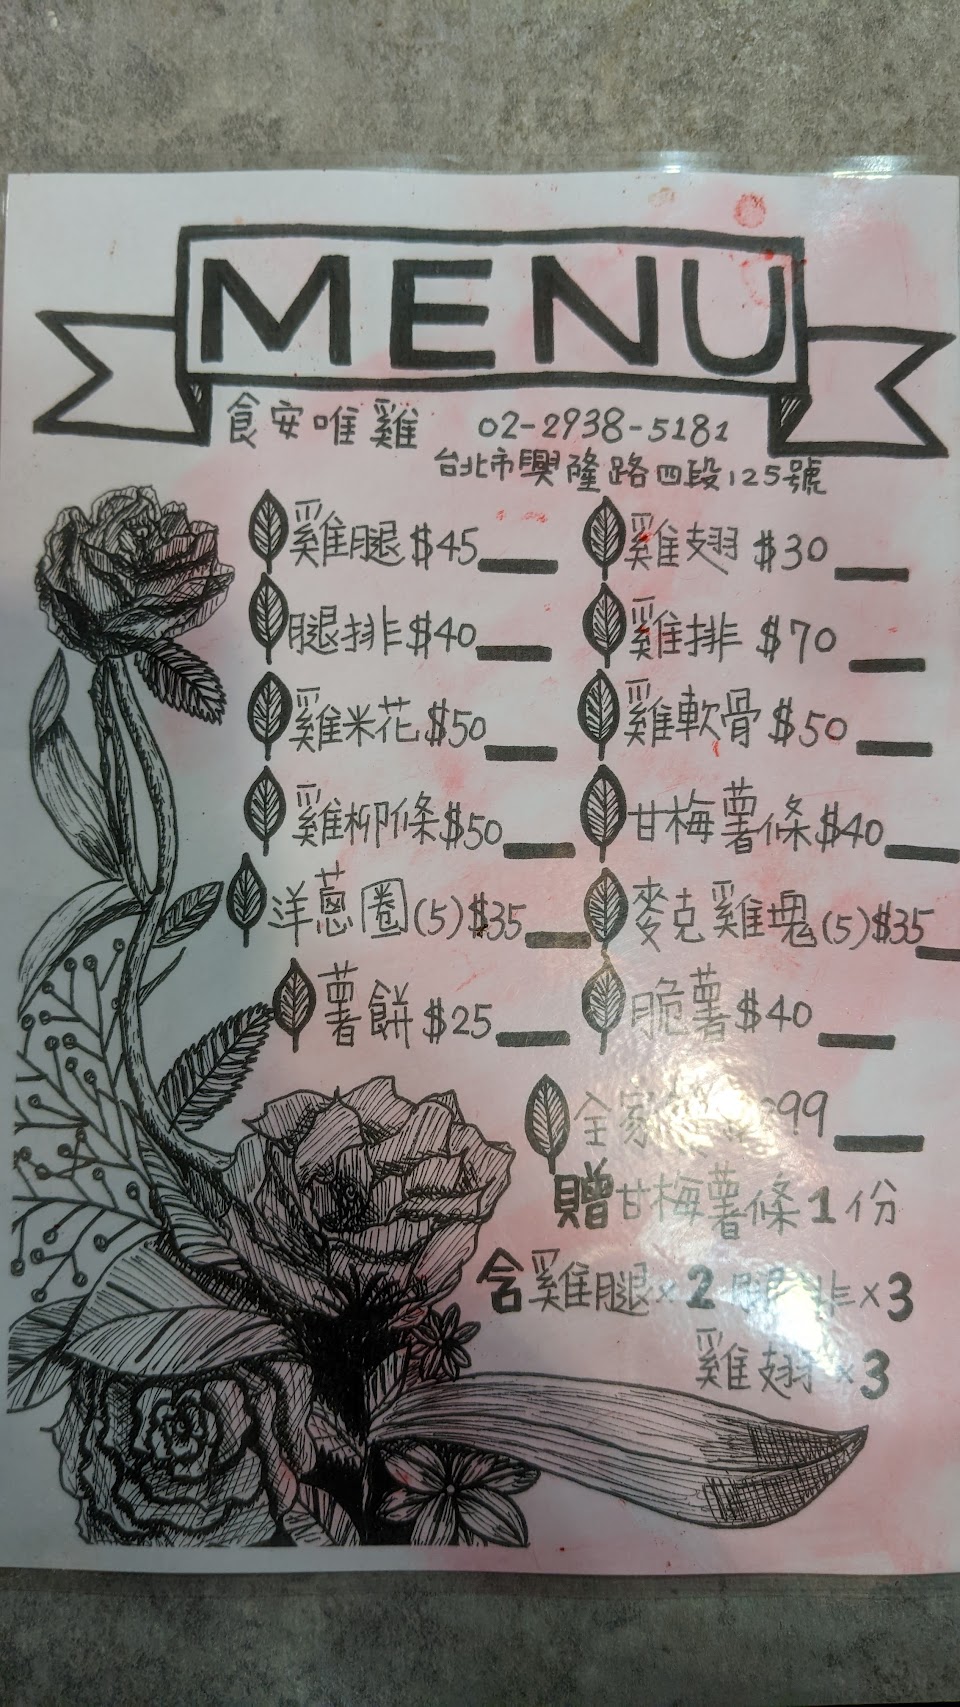 MENU
食安唯雞 02-2938-5181
台北市興隆路四段125號
雞腿 $45 雞翅 $30
腿排 $40 雞排 $70
雞米花 $50 雞軟骨 $50
雞柳條 $50 甘梅薯條 $40
洋蔥圈(5) $35 麥克雞塊(5) $35
薯餅 $25 脆薯 $40
全家 99
贈甘梅薯條1份
含雞腿×2 腿排×3
雞翅×3